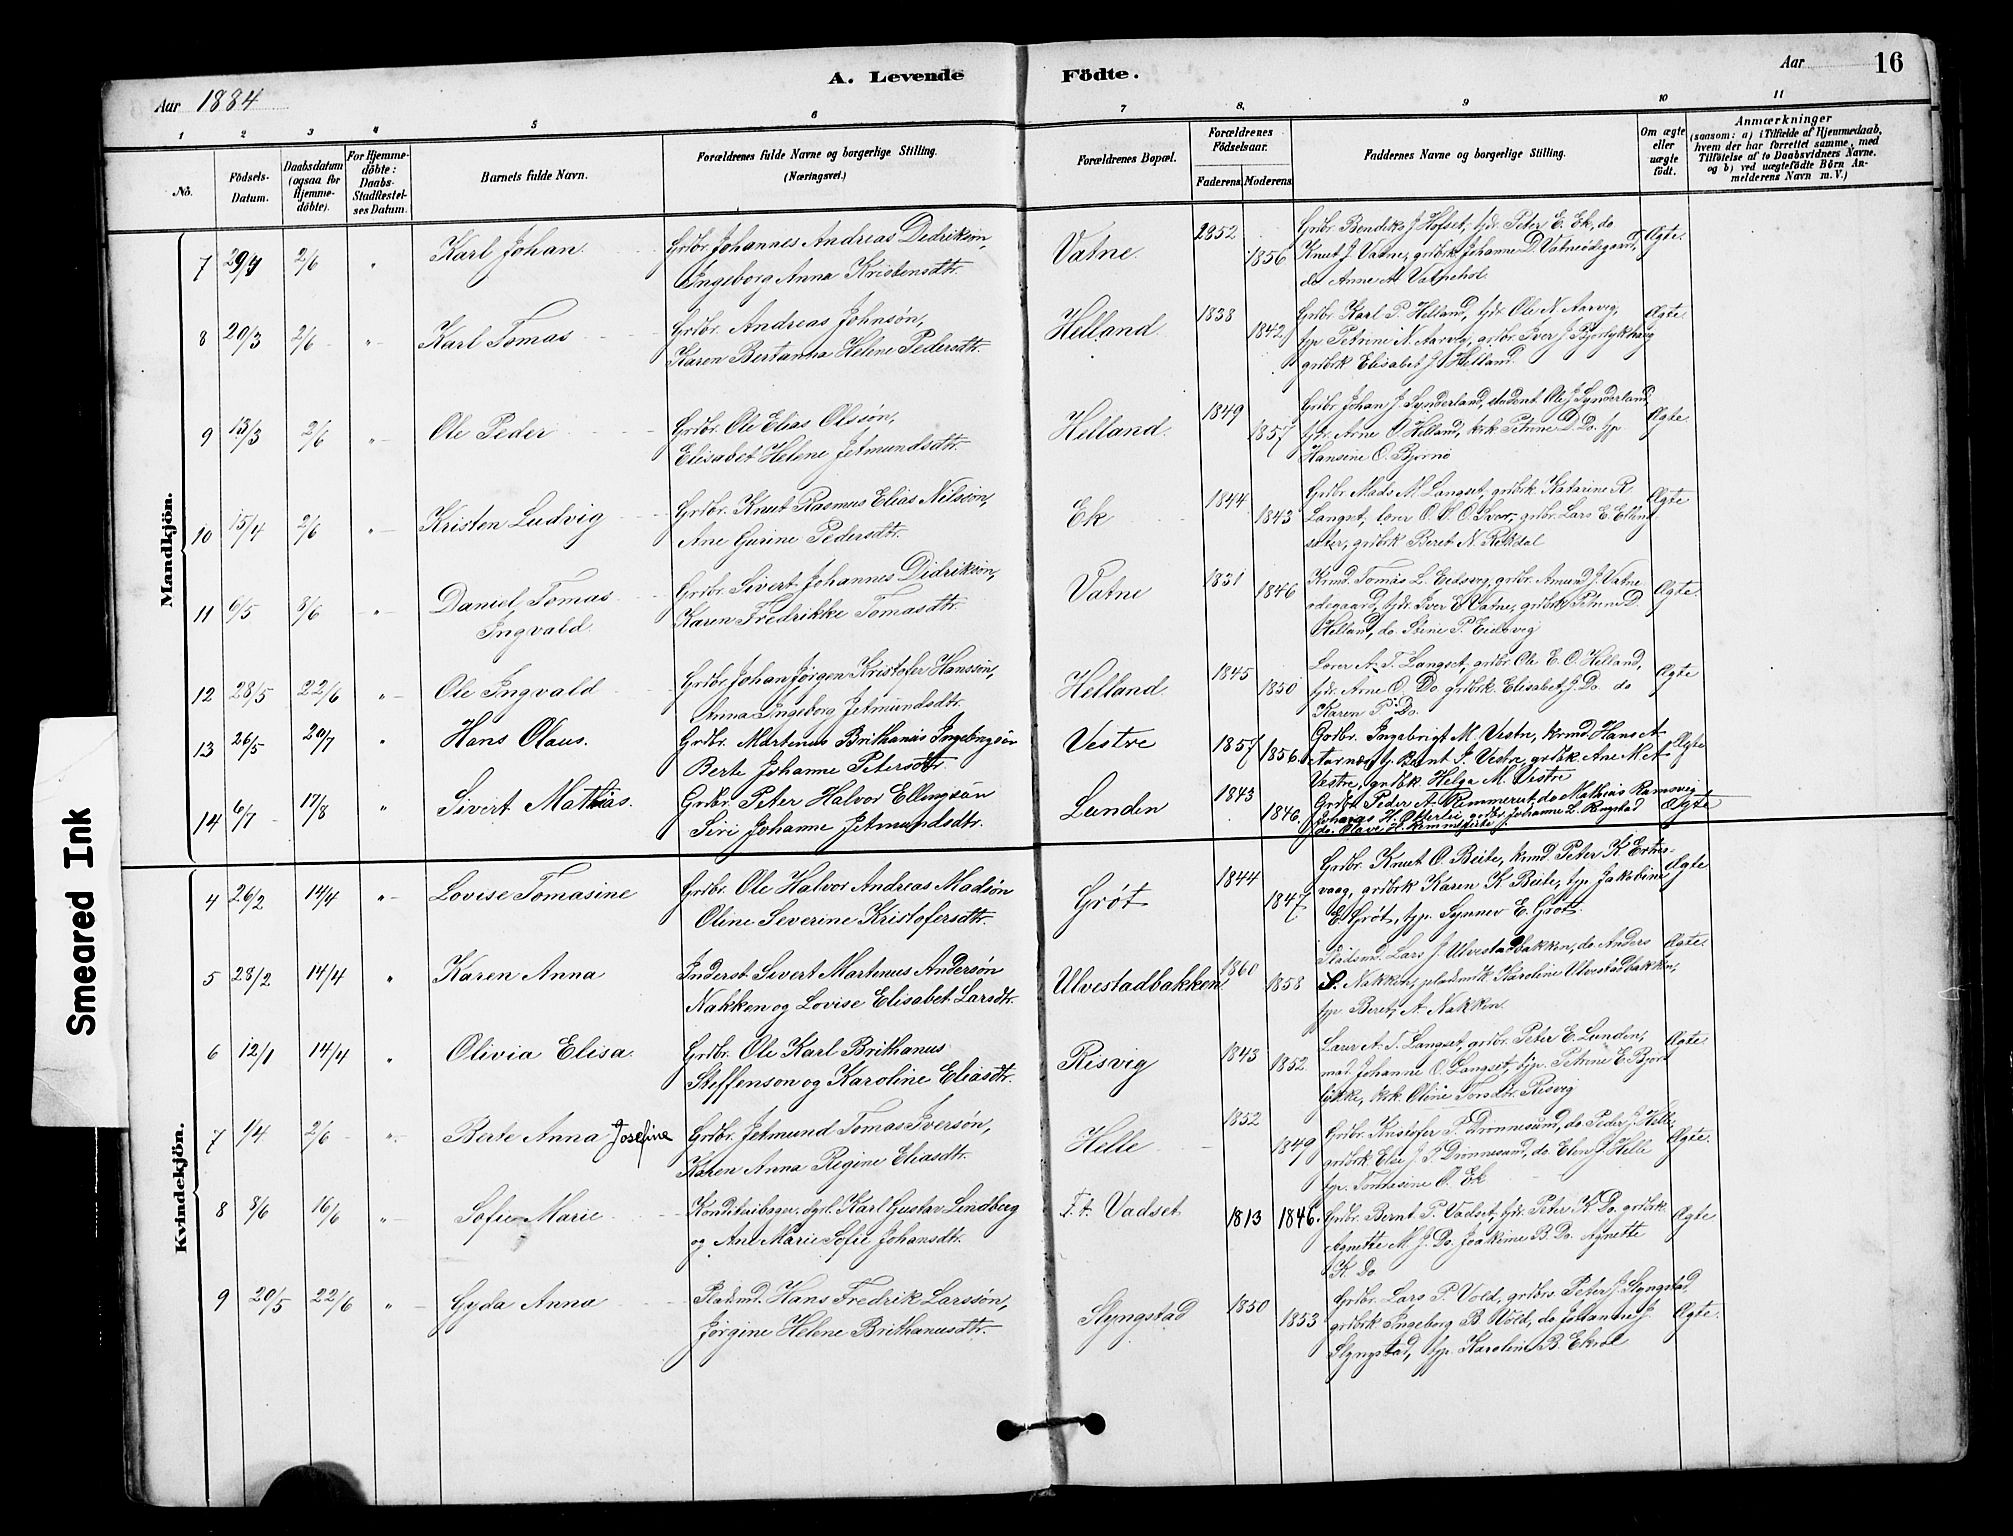 A. Levende Födte.
Aar 1884
Aar 16
1 2 3 4 5 6 7 8. 9 10 11
No.
Födsels-Datum.
Daabsdatum (ogsaa for Hjemme-döbte).
For Hjemme-döbte: Daabs-Stadfestel-ses Datum.
Barnets fulde Navn.
Forældrenes fulde Navne og borgerlige Stilling.
(Næringsvei.)
Forældrenes Bopæl.
Forældrenes Födselsaar.
Faderens. Moderens.
Faddernes Navne og borgerlige Stilling.
Om ægte eller uægte födt.
Anmærkninger
(saasom: a) i Tilfælde af Hjemmedaab, hvem der har forrettet samme, med Tilföielse af to Daabsvidners Navne. og b) ved uægtefödte Börn An-melderens Navn m. V.)
Mandkjön.
7 29/4 2/6 " Karl Johan Grdbr. Johannes Andreas Didrikson, Vatne. 1852 Grdbr. Bendiks J. Hofset, tjdr. Peter E. Ek, do Ægte.
Ingeborg Anna Kristensdtr. 1856 Knut J. Vatne, grdbrk Johanne D. Vatneödegaard,
do Anne A. Vatnehol
8 20/3 2/6 " Karl Tomas Grdbr. Andreas Johnsön, Helland 1838 Grdbr. Karl P. Helland, tjdr. Ole N. Aarvig, Ægte
Karen Bertanna Helene Pedersdtr. 1842 tjp Petrine N. Aarvig, grdbr. Iver J.
grdbrk Elisabet J. Helland.
9 13/3 2/6 " Ole Peder Grdbr. Ole Elias Olssön, Helland 1849 Grdbr. Johan J. Synderland, student Ole J. Synderland, Ægte.
Elisabet Helene Jetmundsdtr. 1857 tjdr. Arne O. Helland, krk Petrine D. Do. tjp
Hansine O. Bjørnö
10 15/4 2/6 " Kristen Ludvig Grdbr. Knut Rasmus Elias Nilssön, Ek 1844 Grdbr. Mads M. Langset, grdbrk. Katarine R Ægte
Ane Gurine Pedersdtr. 1843 Langset, lærer O. P. O. grdbr. Lars E. Elling
sæter, grdbrk Beret N. Rekdal
11 6/5 8/6 " Daniel Tomas Grdbr. Sivert Johannes Didrikson, Vatne 1831 Krmd. Tomas L. Eidsvig, grdbr. Amund J. Vatne Ægte.
Ingvald Karen Fredrikke Tomasdtr. 1846 ödegaard, tjdr. Iver E. Vatne, grdbrk Petrine D.
Helland, do. Stine P. Eidsvig
12 28/5 22/6 " Ole Ingvald Grdbr. Johan Jörgen Kristofer Hanssön, Helland 1845 Lærer A. T. Langset, grdbr. Ole E. O. Helland, Ægte
Anna Ingeborg Jetmundsdtr. 1850 tjdr. Arne O. Do. grdbrk. Elisabet J. Do. do
Karen P. Do.
13 26/5 20/7 " Hans Olaus. Grdbr. Martenus Brithanus Ingebrigsön Vestre 1857 Grdbr. Ingebrigt M. Vestre, krmd. Hans A Ægte
Berte Johanne Petersdtr. 1856. Aarnæs, Bernt J. Vestre, grdbk. Ane M. A
Vestre, grdbk. Helga M. Vestre
14 6/7 17/8 " Sivert Mathias. Grdbr. Peter Halvor Ellingsön Lunden 1843 Grdbr. Peder A. Rimmereit, do Mathias Ramsvig Ægte
Siri Johanne Jetmundsdtr. 1846. Johannes H. Otterlei, Johanne L. Rogstad
do. Olave H.
Kvindekjön.
4 26/2 14/4 " Lovise Tomasine Grdbr. Ole Halvor Andreas Madsön Gröt 1844 Grdbr. Knut O. Beite, krmd. Peter K. Ertes- Ægte
Oline Severine Kristofersdtr. 1847 vaag, grdbrk Karen K. Beite, tjp Jakobine
E. Gröt, tjp. Synnev E. Gröt.
5 28/2 14/4 " Karen Anna Inderst Sivert Martenus Andersön Ulvestadbakken 1860 Pladsmd. Lars J. Ulvestadbakken, do Anders Ægte.
Nakken og Lovise Elisabet Larsdtr. 1858 S. Nakken, pladsmk Karoline Ulvestadbakken,
tjp. Beret A. Nakken.
6 12/1 14/4 " Olivia Elisa. Grdbr. Ole Karl Brithanus Risvig 1843 Lærer A. T. Langset, grdbr. Peter E. Lunden, Ægte
Steffenson og Karoline Eliasdtr. 1852. mad. Johanne O. Langset, tjp. Petrine E. Bjørn
lökke, krk. Oline Torsdtr. Risvig
7 1/4 2/6 " Berte Anna Josefine Grdbr. Jetmund Tomas Iversön, Helle 1852 Grdbr. Kristofer P. Drönnesund, do Peder J. Helle, Ægte.
Karen Anna Regine Eliasdtr. 1849 grdbrk Else J. P. Drönnesund, do. Elen J. Helle
tjp. Tomasine O. Ek
8 3/6 16/6 " Sofie Marie Konditribager. dgrl. Karl Gustav Lindberg F. t. Vadset 1813 Grdbr. Bernt P. Vadset, tjdr. Peter K. Do. grdbrk Ægte
og Ane Marie Sofie Johansdtr. 1846. Agnette M. J. Do. Joakime B. Do. Agnette
K. Do
9 20/5 22/6 " Gyda Anna Pladsmd. Hans Fredrik Larssön, Slyngstad 1850 Grdbr. Lars P. Vold, grdbrs Peter J. Slyngstad, Ægte.
Jörgine Helene Brithanusdtr. 1853 grdbrk Ingeborg B. Vold, do Johanne J.
Slyngstad, tjp. Karoline B. Ekrol
Smeared Ink